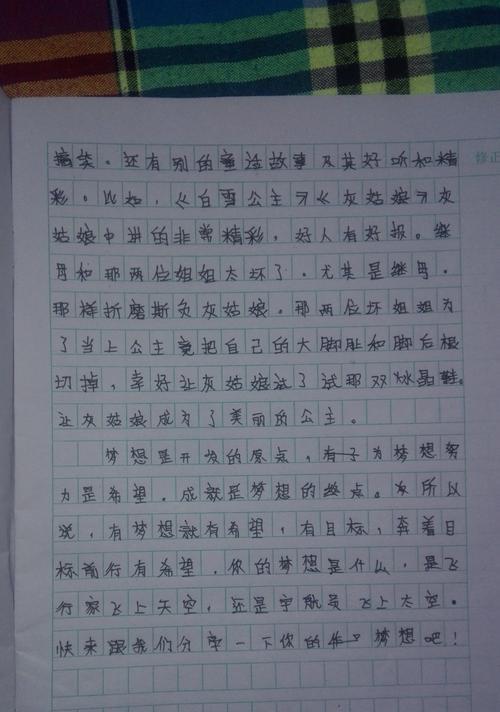 搞笑。还有别的童话故事及其好听和精
彩。比如，《白雪公主》《灰姑娘》灰
姑娘中讲的非常精彩，好人有好报。继
母和那两位姐姐太坏了。尤其是继母，
那样折磨斯负灰姑娘。那两位坏姐姐为
了当上公主竟把自己的大脚趾和脚后根
切掉，幸好让灰姑娘试了试那双水晶鞋。
让灰姑娘成为了美丽的公主。
梦想是开发的原点，为梦想努
力是希望。成就是梦想的终点。所以
说，有梦想就有希望，有目标，奔着目
标前行有希望。你的梦想是什么，是飞
行家飞上天空，还是宇航员飞上太空。
快来跟我们分享一下你的梦想吧！
修正